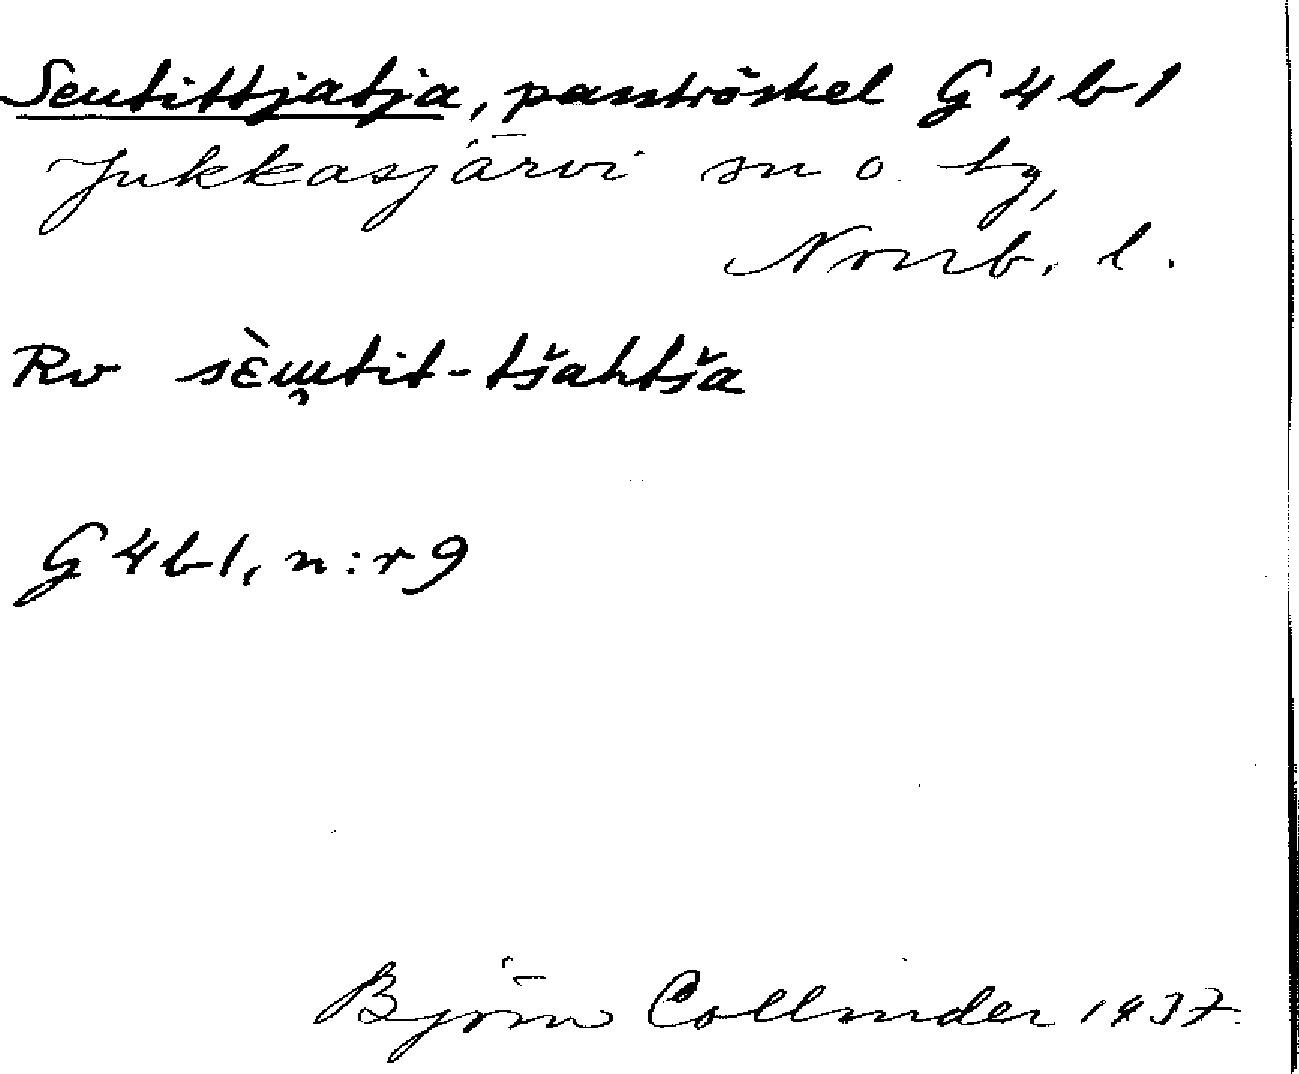 Seutittjatja, pasströskel G4b1
Jukkasjärvi sn o. tg,
Norrb. l.
Rv sèɯ̯tit-tšahtša
G4b1, n:r 9
Björn Collinder 1937.